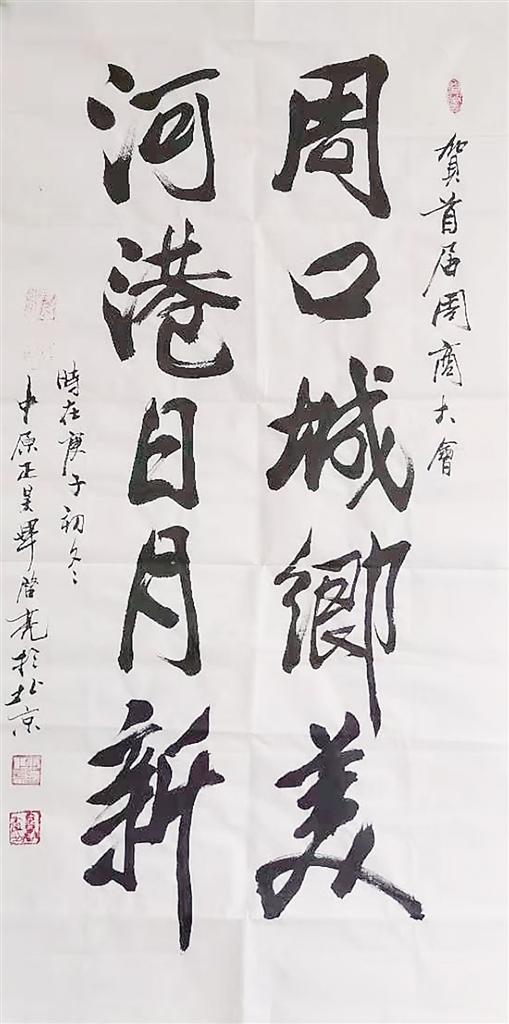 賀首届周商大會
周口城鄉美
河港日月新
時在庚子初冬
中原正昊畢啓亮於北京